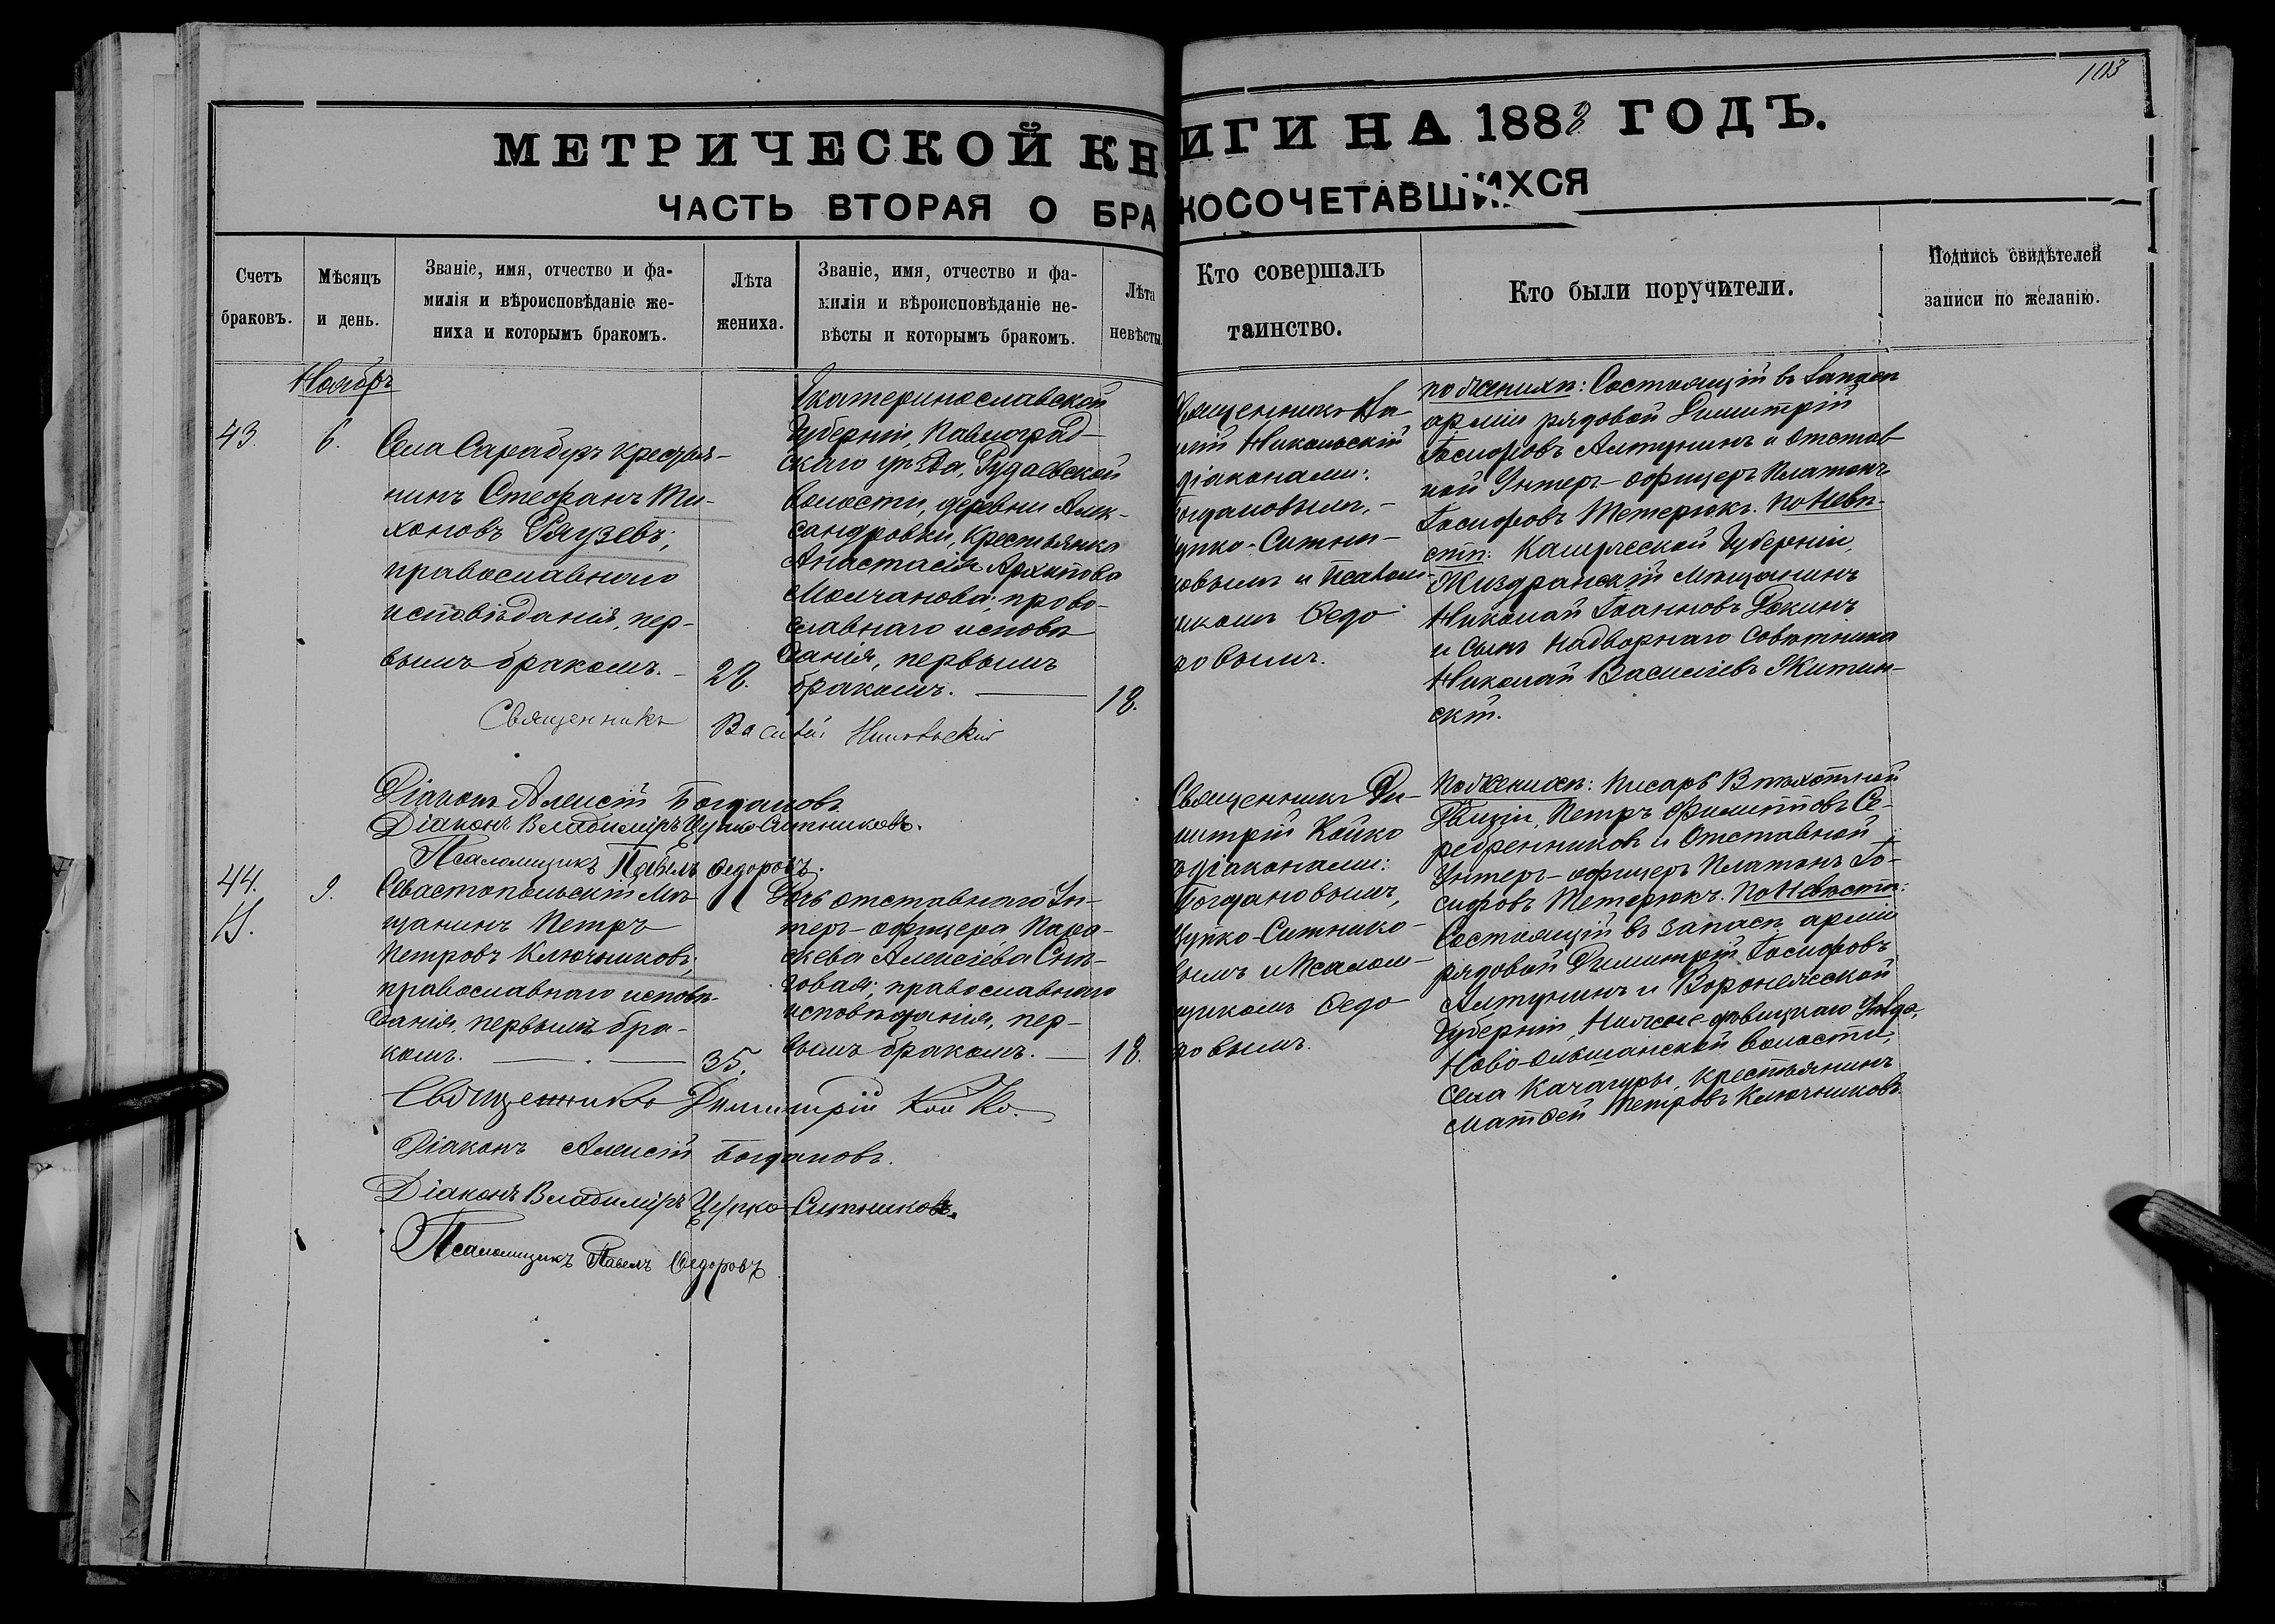 103
МЕТРИЧЕСКОЙ КНИГИ НА 1888 ГОДЪ.
ЧАСТЬ ВТОРАЯ О БРАКОСОЧЕТАВШИХСЯ
Счетъ
браковъ.
Мѣсяцъ
и день.
Званіе, имя, отчество и фа-
милія и вѣроисповѣданіе же-
ниха и которымъ бракомъ.
Лѣта
жениха.
Званіе, имя, отчество и фа-
милія и вѣроисповѣданіе не-
вѣсты и которымъ бракомъ.
Лѣта
невѣсты.
Кто совершалъ
таинство.
Кто были поручители.
Подпись свидѣтелей
записи по желанію.
Ноябрь
43.
6.
Села Сарабузъ крестья-
нинъ Стефанъ Ти-
хоновъ Ряузевъ;
православнаго
исповѣданія, пер-
вымъ бракомъ. -
28.
Екатеринославской
Губерніи, Павлоград-
скаго уѣзда,
волости, деревни Алек-
сандровки, крестьянка
Анастасія Архипова
Молчанова; право-
славнаго исповѣ
данія, первымъ
бракомъ. -
18.
Священникъ Ва
илій Никольскій
діаконами:
Богдановымъ, -
Цупко-Ситни-
ковымъ и Псалом-
щикомъ Ѳедо
ровымъ.
по женихѣ: Состоящій въ Запасѣ
арміи рядовой Димитрій
Іосифовъ Алтунинъ и Отстав-
ной Унтеръ-офицеръ Платонъ
Іосифовъ Тетерюкъ. По Невѣ-
стѣ: Калужской Губерніи,
Жиздранскій Мѣщанинъ
Николай Іоанновъ
и Сынъ Надворнаго Совѣтника
Николай Василіевъ Житин-
скій.
Священникъ Василій Никольскій
Діаконъ Алексій Богдановъ
Діаконъ Владиміръ Цупко-Ситниковъ.
Псаломщикъ Павелъ Ѳедоровъ.
44.
9.
Севастопольскій Мѣ-
щанинъ Петръ
Петровъ Ключниковъ;
православнаго исповѣ-
данія, первымъ бра-
комъ. -
35.
Дочь отставнаго Ун-
теръ-офицера Пара-
скева Алексіева
православнаго
исповѣданія, пер-
вымъ бракомъ. -
18.
Священникъ Ди-
митрій Койко
съ діаконами:
Богдановымъ,
Цупко-Ситнико-
вымъ и Псалом-
щикомъ Ѳедо
ровымъ.
По женихѣ: Писарь пѣхотной
Дивизіи, Петръ Филипповъ Се-
ребренниковъ и Отставной
Унтеръ-офицеръ Платонъ Іо-
сифовъ Тетерюкъ. По Невѣстѣ:
Состоящій въ запасѣ арміи
рядовой Димитрій Іосифовъ
Алтунинъ и Воронежской
Губерніи Нижне-дѣвицкаго Уѣзда,
Ново-Ольшанской волости,
Села Качагуры, крестьянинъ
Матѳей Петровъ Ключниковъ
Священникъ Димитрій Койко.
Діаконъ Алексій Богдановъ.
Діаконъ Владиміръ Цупко-Ситниковъ.
Псаломщикъ Павелъ Ѳедоровъ